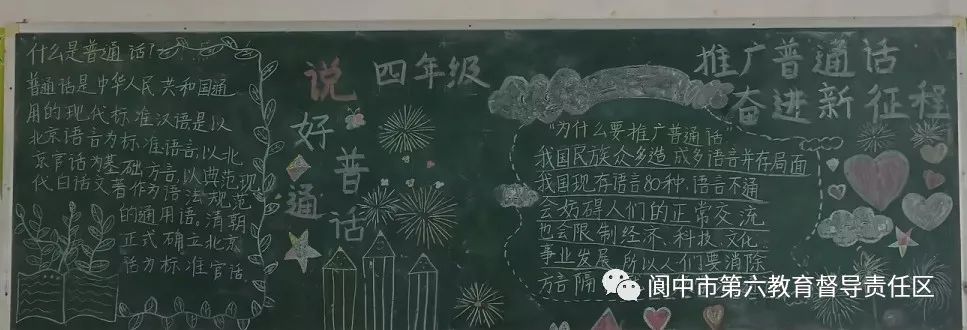 什么是普通话?
普通话是中华人民共和国通
用的现代标准汉语是以
北京语言为标准语音,以北
京官话为基础方言,以典范现
代白话文著作为语法规范
的通用语。清朝
正式确立北京
话为标准官话
说好普通话
四年级
推广普通话
奋进新征程
"为什么要推广普通话"
我国民族众多造成多语言并存局面
我国现存语言80种.语言不通
会妨碍人们的正常交流
也会限制经济、科技、文化、
事业发展,所以人们要消除
方言隔
阆中市第六教育督导责任区